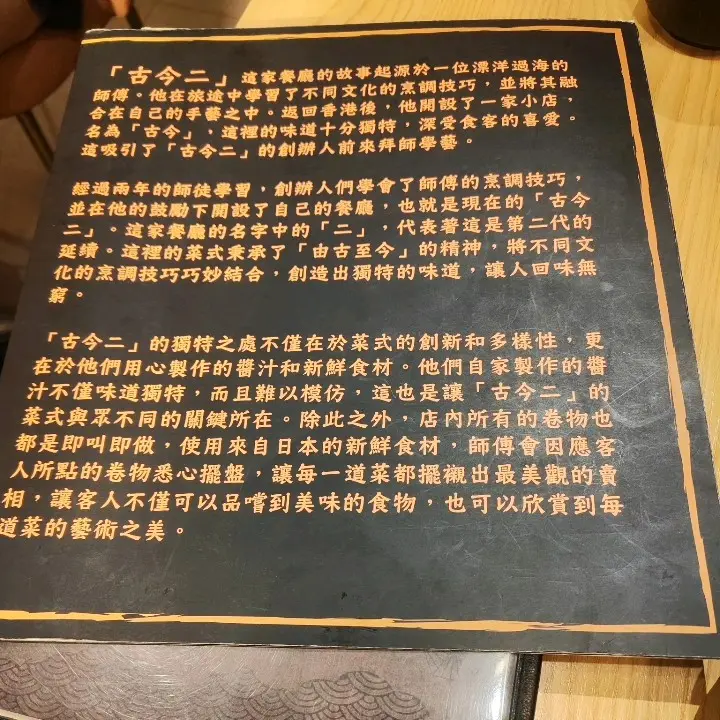 「古今二」這家餐廳的故事起源於一位漂洋過海的
師傅。他在旅途中學習了不同文化的烹調技巧，並將其融
合在自己的手藝之中。返回香港後，他開設了一家小店，
名為「古今」，這裡的味道十分獨特，深受食客的喜愛。
這吸引了「古今二」的創辦人前來拜師學藝。
經過兩年的師徒學習，創辦人們學會了師傅的烹調技巧，
並在他的鼓勵下開設了自己的餐廳，也就是現在的「古今
二」。這家餐廳的名字中的「二」，代表著這是第二代的
延續。這裡的菜式秉承了「由古至今」的精神，將不同文
化的烹調技巧巧妙結合，創造出獨特的味道，讓人回味無
窮。
「古今二」的獨特之處不僅在於菜式的創新和多樣性，更
在於他們用心製作的醬汁和新鮮食材。他們自家製作的醬
汁不僅味道獨特，而且難以模仿，這也是讓「古今二」的
菜式與眾不同的關鍵所在。除此之外，店內所有的卷物也
都是即叫即做，使用來自日本的新鮮食材，師傅會因應客
人所點的卷物悉心擺盤，讓每一道菜都擺襯出最美觀的賣
相，讓客人不僅可以品嚐到美味的食物，也可以欣賞到每
道菜的藝術之美。